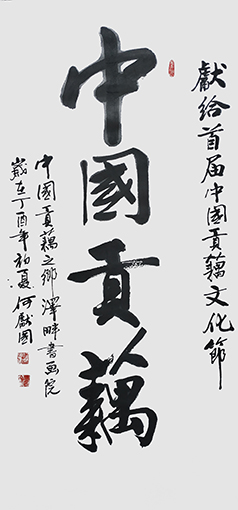 獻给首届中国贡藕文化節
中國貢藕
中國貢藕之鄉澤畔書画院
歲在丁酉年初夏何獻國